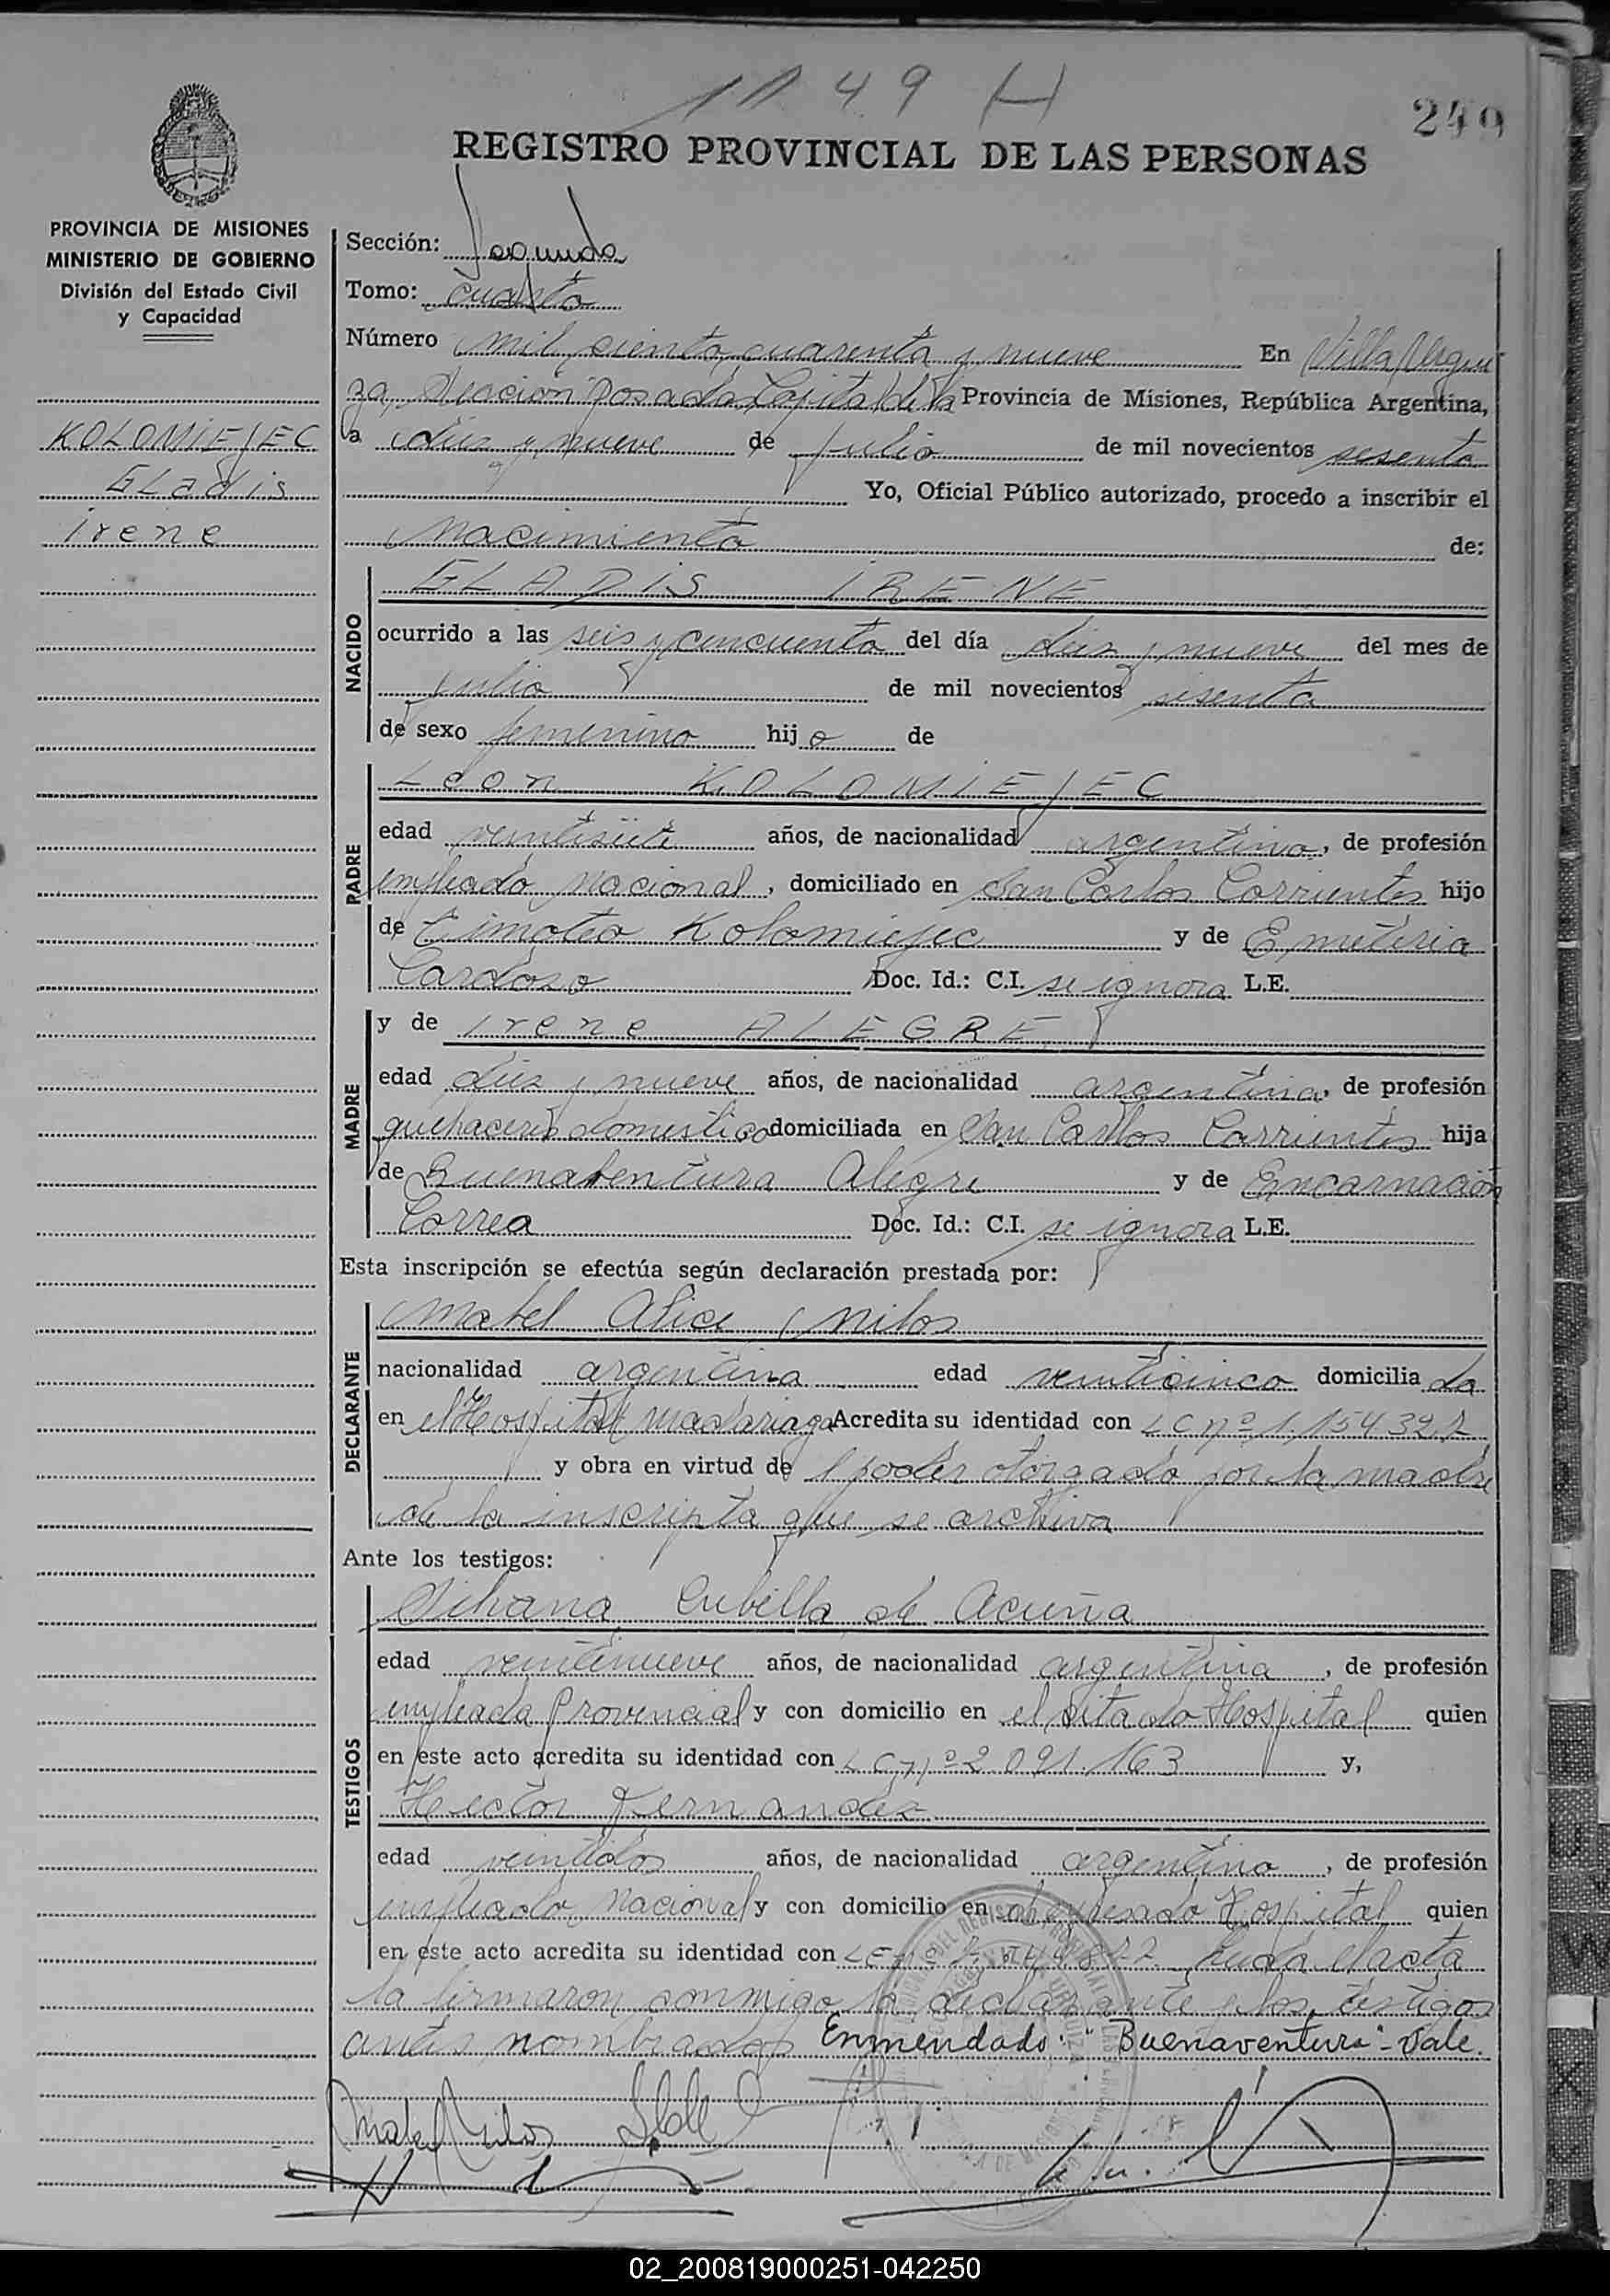 1149 H
249
REGISTRO PROVINCIAL DE LAS PERSONAS
PROVINCIA DE MISIONES
MINISTERIO DE GOBIERNO
División del Estado Civil
y Capacidad
KOLOMIEJEC
Gladis
irene
Sección: Segunda
Tomo: cuarto
Número mil ciento cuarenta y nueve En Villa Urqui
za, Sección Posadas Capital de la Provincia de Misiones, República Argentina,
a diez y nueve de julio de mil novecientos sesenta
Yo, Oficial Público autorizado, procedo a inscribir el
nacimiento de:
NACIDO
GLADIS IRENE
ocurrido a las seis y cincuenta del día diez y nueve del mes de
julio de mil novecientos sesenta
de sexo femenino hija de
PADRE
Leon KOLOMIEJEC
edad veintisiete años, de nacionalidad argentino, de profesión
empleado nacional, domiciliado en San Carlos Corrientes hijo
de Timoteo Kolomiejec y de Emeteria
Cardozo Doc. Id.: C.I. se ignora L.E.
MADRE
y de Irene ALEGRE
edad diez y nueve años, de nacionalidad argentina, de profesión
quehaceres domestico domiciliada en San Carlos Corrientes hija
de Buenaventura Alegre y de Encarnación
Correa Doc. Id.: C.I. se ignora L.E.
Esta inscripción se efectúa según declaración prestada por:
DECLARANTE
Mabel Alice Milos
nacionalidad argentina edad veinticinco domiciliada
en el Hospital Madariaga Acredita su identidad con LC nº 1.154.327
y obra en virtud del poder otorgado por la madre
de la inscripta que se archiva
Ante los testigos:
TESTIGOS
Silvana Cubilla de Acuña
edad veintinueve años, de nacionalidad argentina, de profesión
empleada Provincial y con domicilio en el citado Hospital quien
en este acto acredita su identidad con LC nº 2.091.163 y,
Hector Fernandez
edad veintidos años, de nacionalidad argentino, de profesión
empleado Nacional y con domicilio en el Hospital quien
en este acto acredita su identidad con LE nº Leida el acta
la firmaron conmigo la declarante y los testigos
antes nombrados Enmendado: "Buenaventura" - Vale.
Mabel Milos
02_200819000251-042250